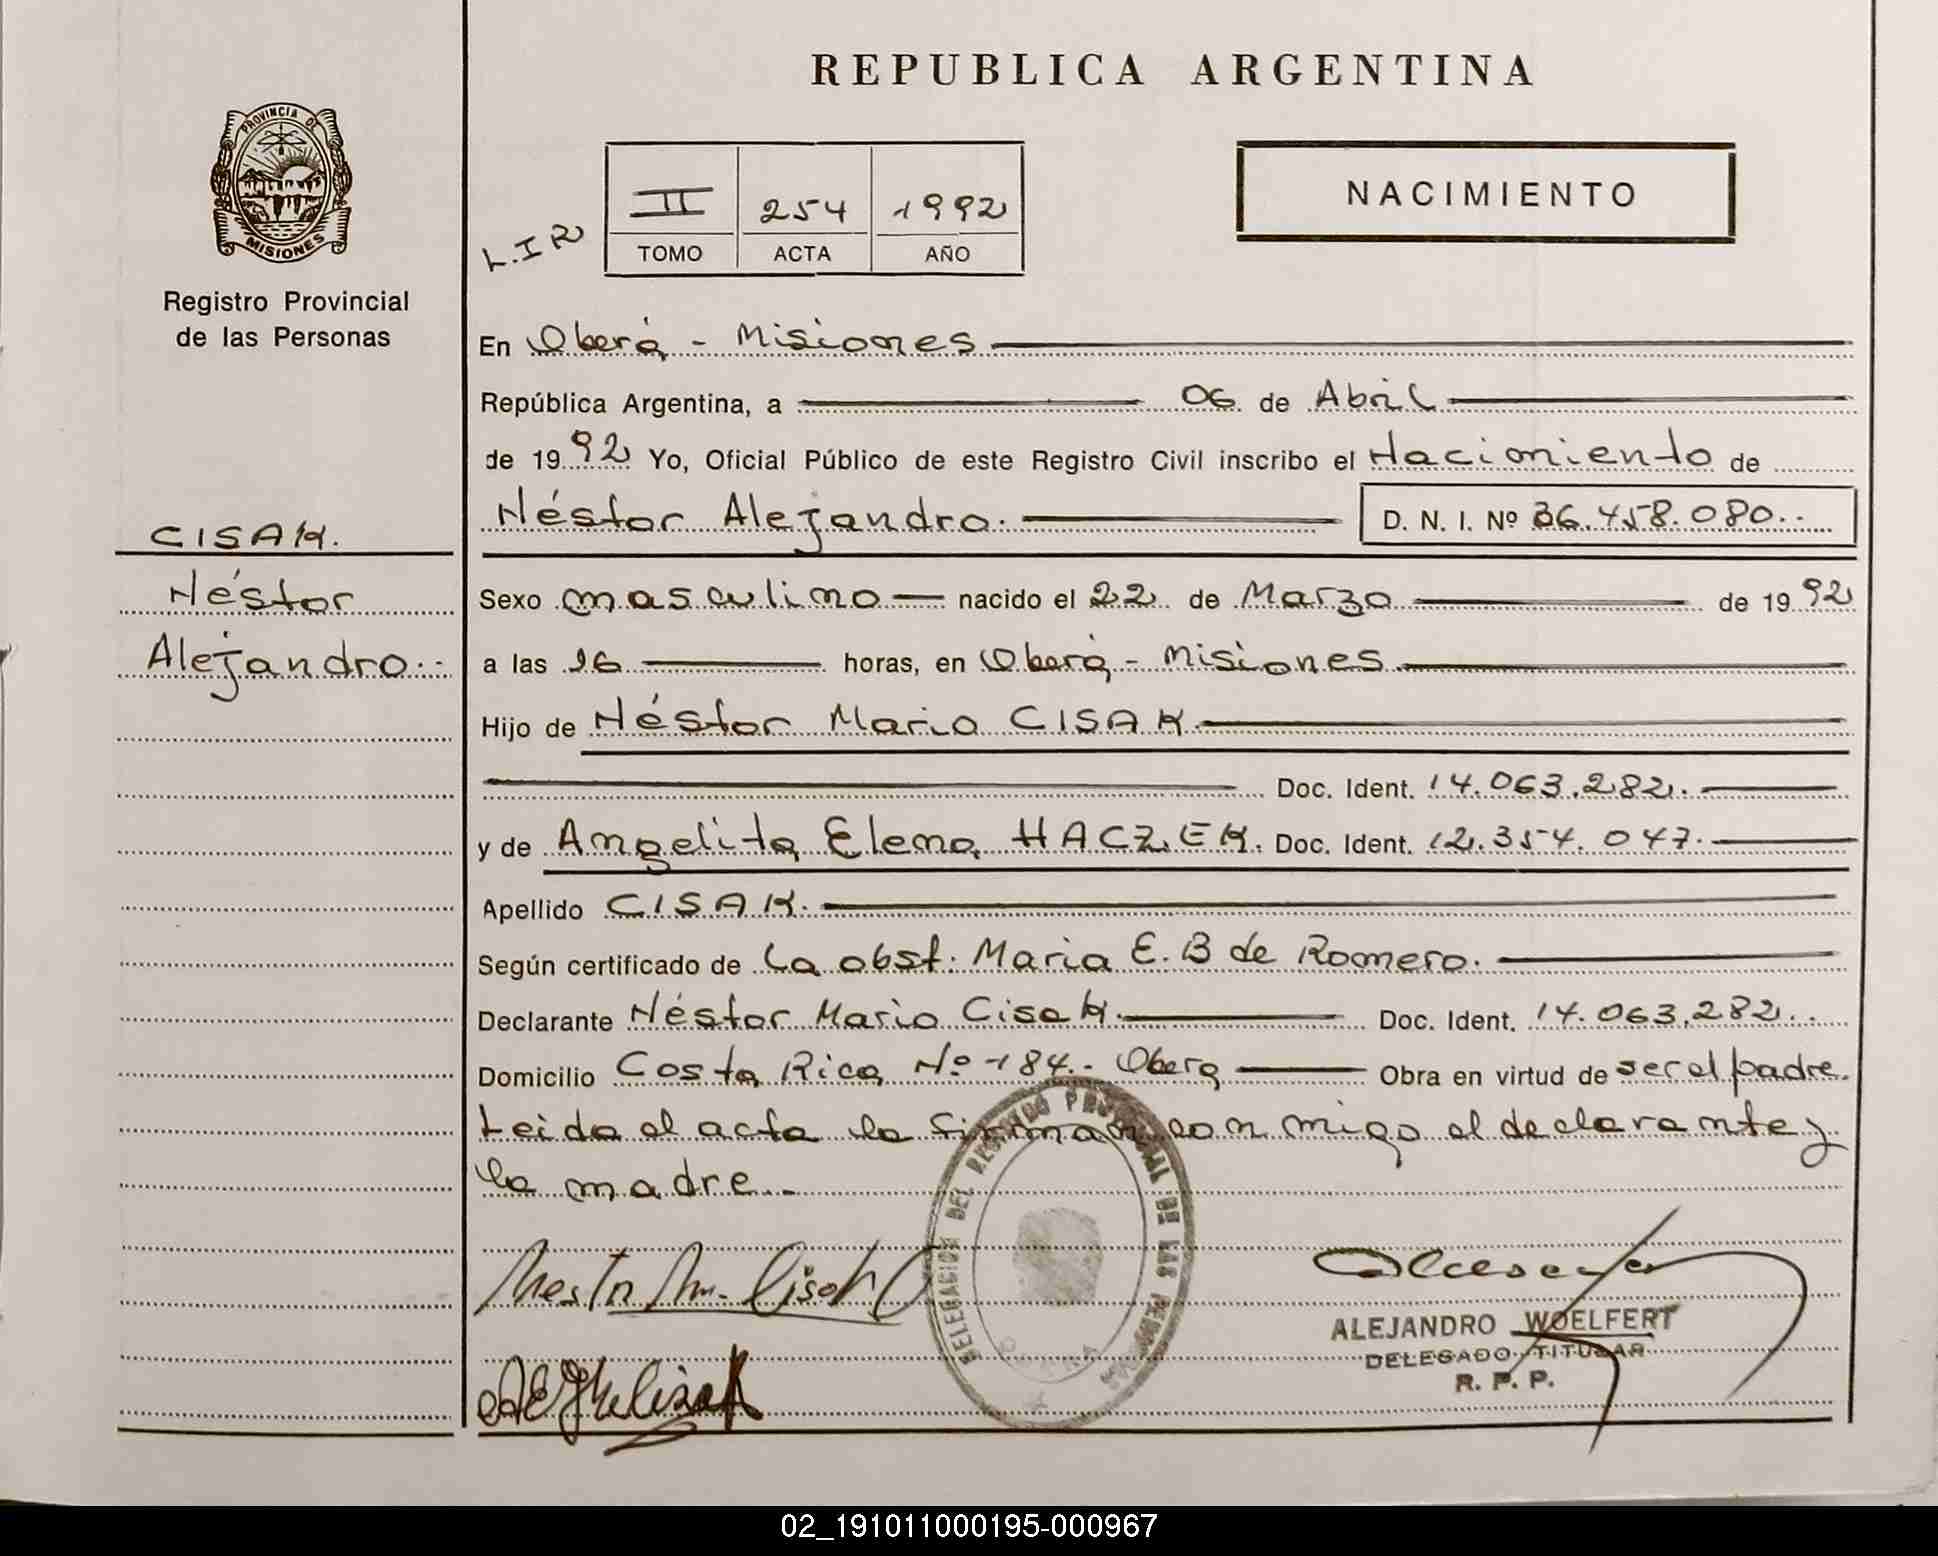 REPUBLICA ARGENTINA
PROVINCIA DE
MISIONES
Registro Provincial
de las Personas
L.I.R
II 254 1992
TOMO ACTA AÑO
NACIMIENTO
En Oberá - Misiones
República Argentina, a 06 de Abril
de 1992 Yo, Oficial Público de este Registro Civil inscribo el Nacimiento de
Néstor Alejandro. D. N. I. Nº 36.458.080..
CISAK.
Néstor
Alejandro..
Sexo masculino nacido el 22 de Marzo de 1992
a las 16 horas, en Oberá - Misiones
Hijo de Néstor Mario CISAK.
Doc. Ident. 14.063.282.
y de Angelita Elena HACZEK. Doc. Ident. 12.354.047.
Apellido CISAK.
Según certificado de la obst. Maria E. B de Romero.
Declarante Néstor Mario Cisak. Doc. Ident. 14.063.282..
Domicilio Costa Rica Nº 184.. Oberá Obra en virtud de ser el padre.
Leida el acta la firman con migo el declarante y
la madre..
DELEGACION DEL REGISTRO PROVINCIAL DE LAS PERSONAS
OBERA
ALEJANDRO WOELFERT
DELEGADO TITULAR
R. P. P.
02_191011000195-000967